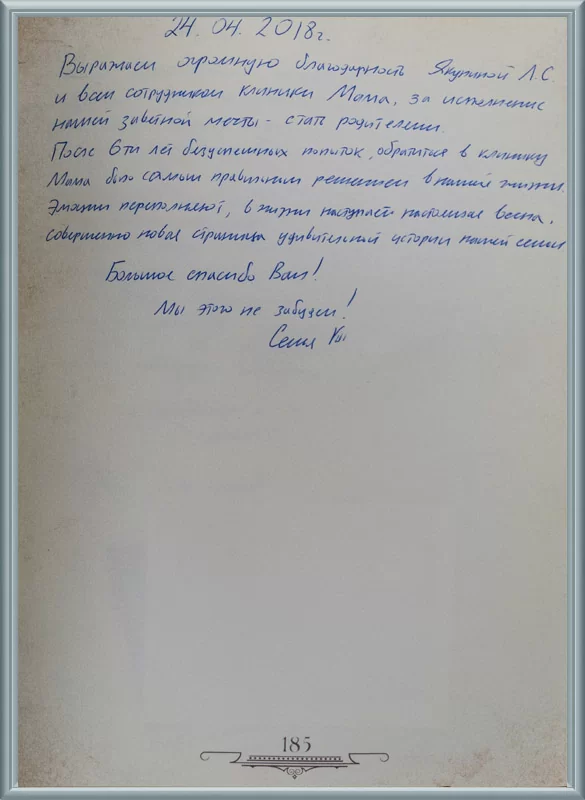 24.04.2018г.
Выражаем огромную благодарность Якупиной Л.С.
и всем сотрудникам клиники Мама, за исполнение
нашей заветной мечты - стать родителями.
После 6ти лет безуспешных попыток, обратиться в клинику
Мама было самым правильным решением в нашей жизни.
Эмоции переполняют, в жизни наступает настоящая весна,
совершенно новая страница удивительной истории нашей семьи
Большое спасибо Вам!
Мы этого не забудем!
Семья
185